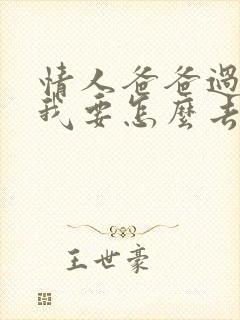 情人爸爸過
我要怎麼去
王世豪